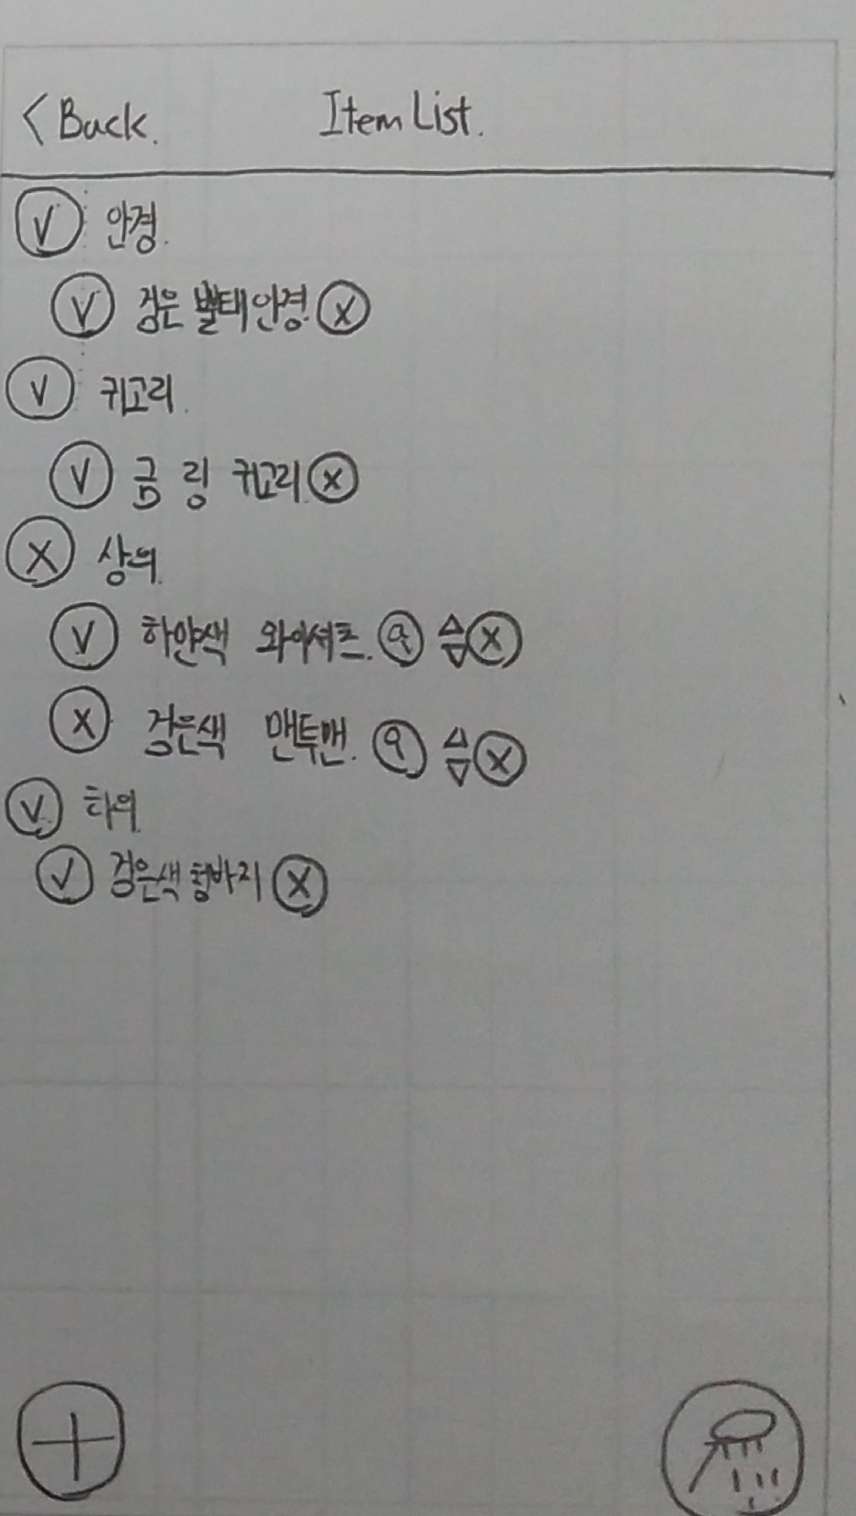 < Back. Item List.
V 안경.
V 검은 뿔태안경. X
V 귀고리.
V 금 링 귀고리. X
X 상의.
V 하얀색 와이셔츠. X
X 검은색 맨투맨. X
V 하의.
V 검은색 청바지 X
+